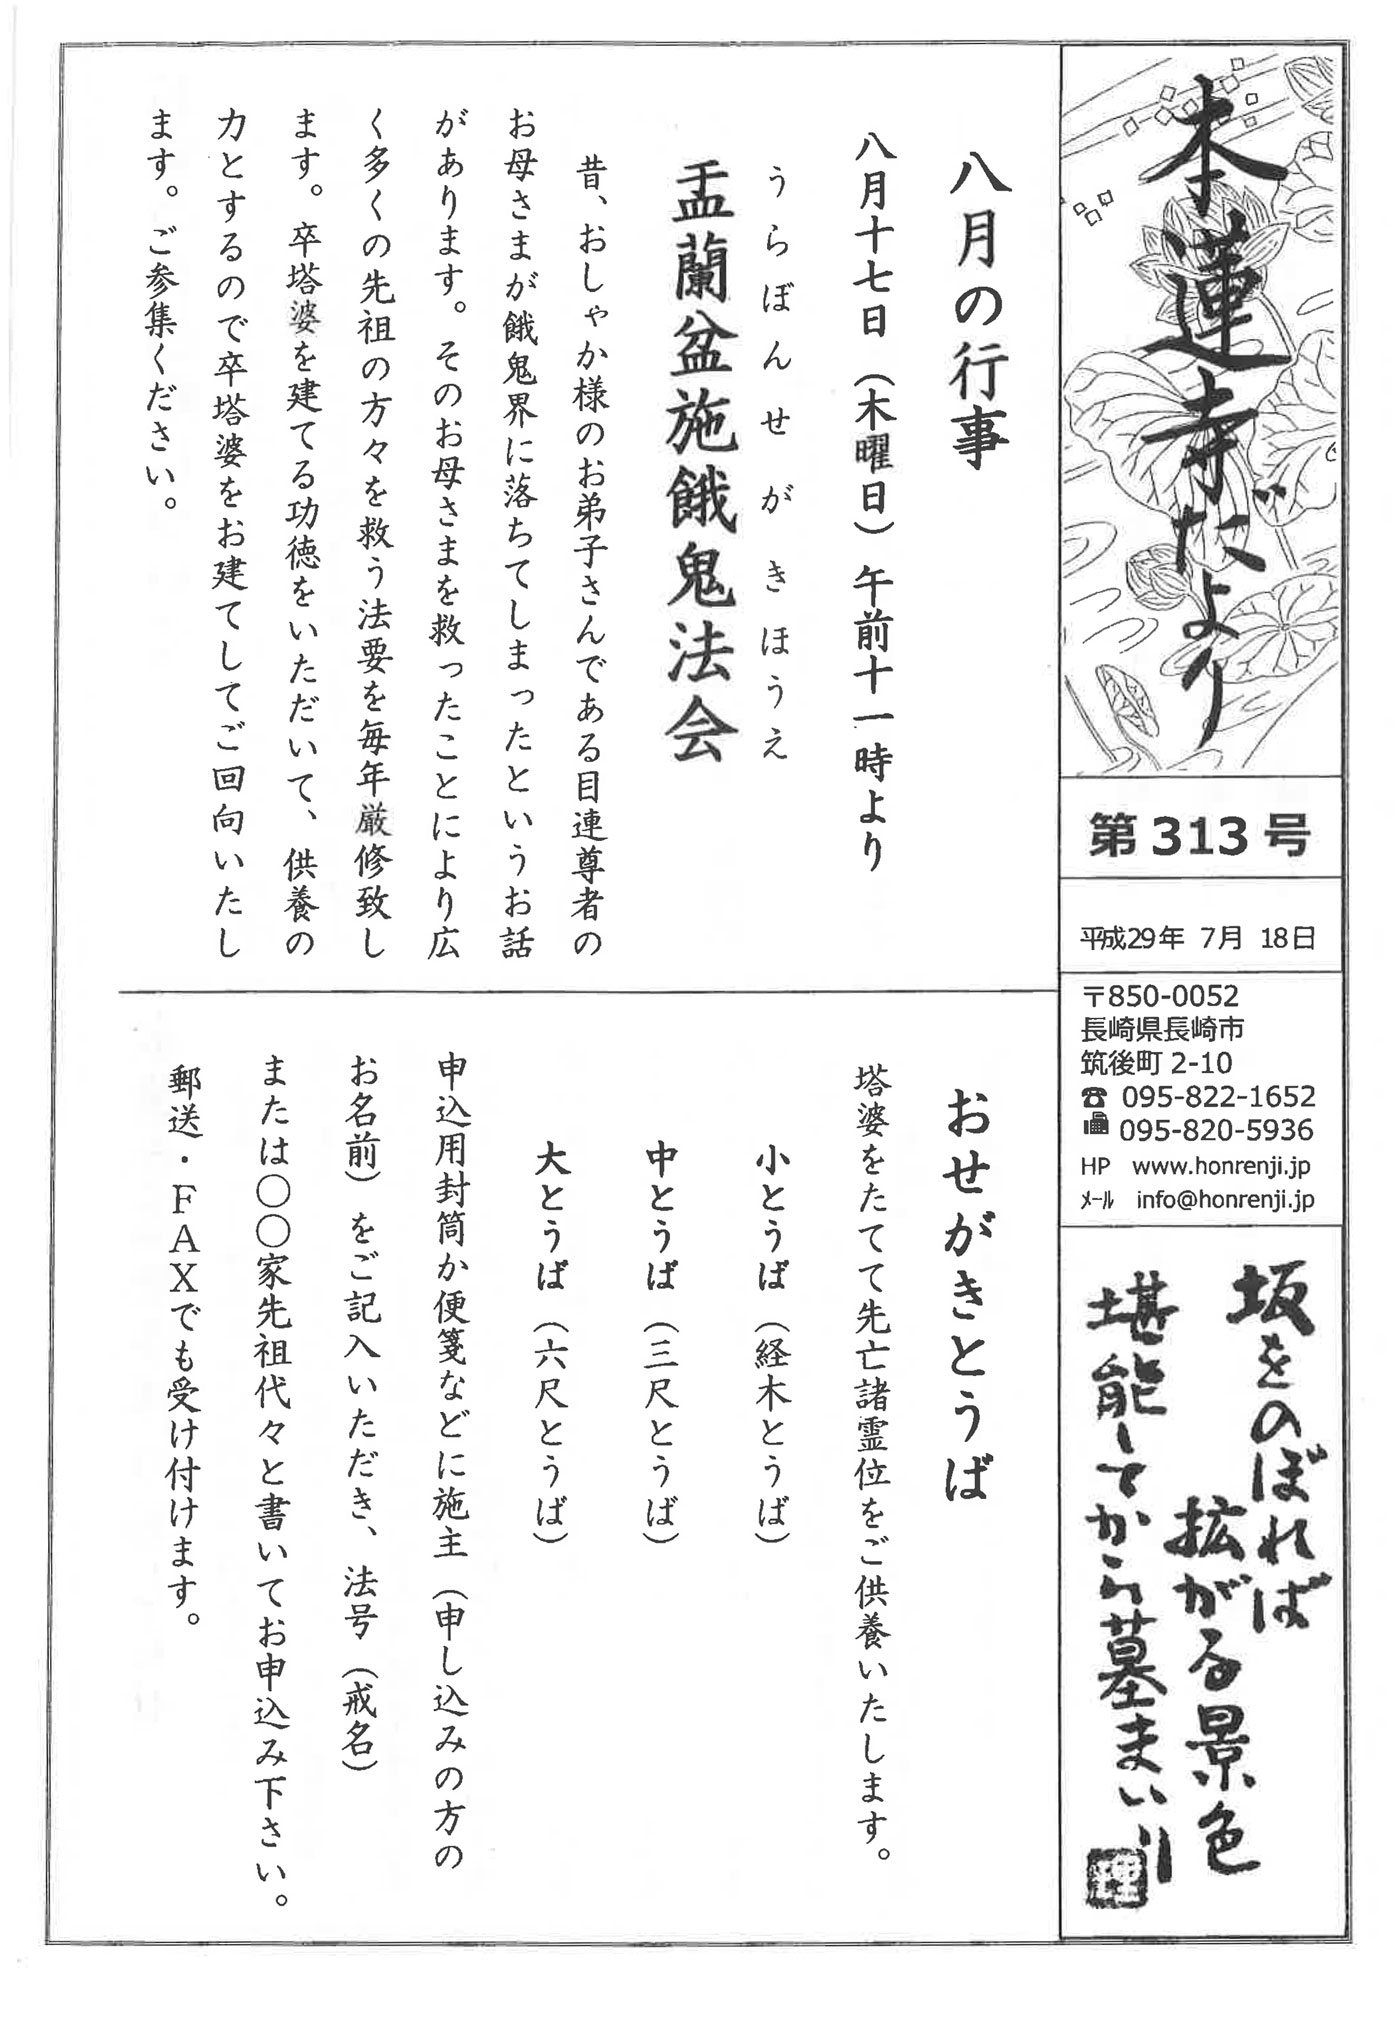 本蓮寺だより
第313号
平成29年 7月 18日
〒850-0052
長崎県長崎市
筑後町 2-10
☎ 095-822-1652
095-820-5936
HP www.honrenji.jp
ﾒｰﾙ info@honrenji.jp
坂をのぼれば
拡がる景色
堪能してから墓まいり
理
八月の行事
八月十七日（木曜日）午前十一時より
うらぼんせがきほうえ
盂蘭盆施餓鬼法会
昔、おしゃか様のお弟子さんである目連尊者の
お母さまが餓鬼界に落ちてしまったというお話
があります。そのお母さまを救ったことにより広
く多くの先祖の方々を救う法要を毎年厳修致し
ます。卒塔婆を建てる功徳をいただいて、供養の
力とするので卒塔婆をお建てしてご回向いたし
ます。ご参集ください。
おせがきとうば
塔婆をたてて先亡諸霊位をご供養いたします。
小とうば（経木とうば）
中とうば（三尺とうば）
大とうば（六尺とうば）
申込用封筒か便箋などに施主（申し込みの方の
お名前）をご記入いただき、法号（戒名）
または〇〇家先祖代々と書いてお申込み下さい。
郵送・ＦＡＸでも受け付けます。